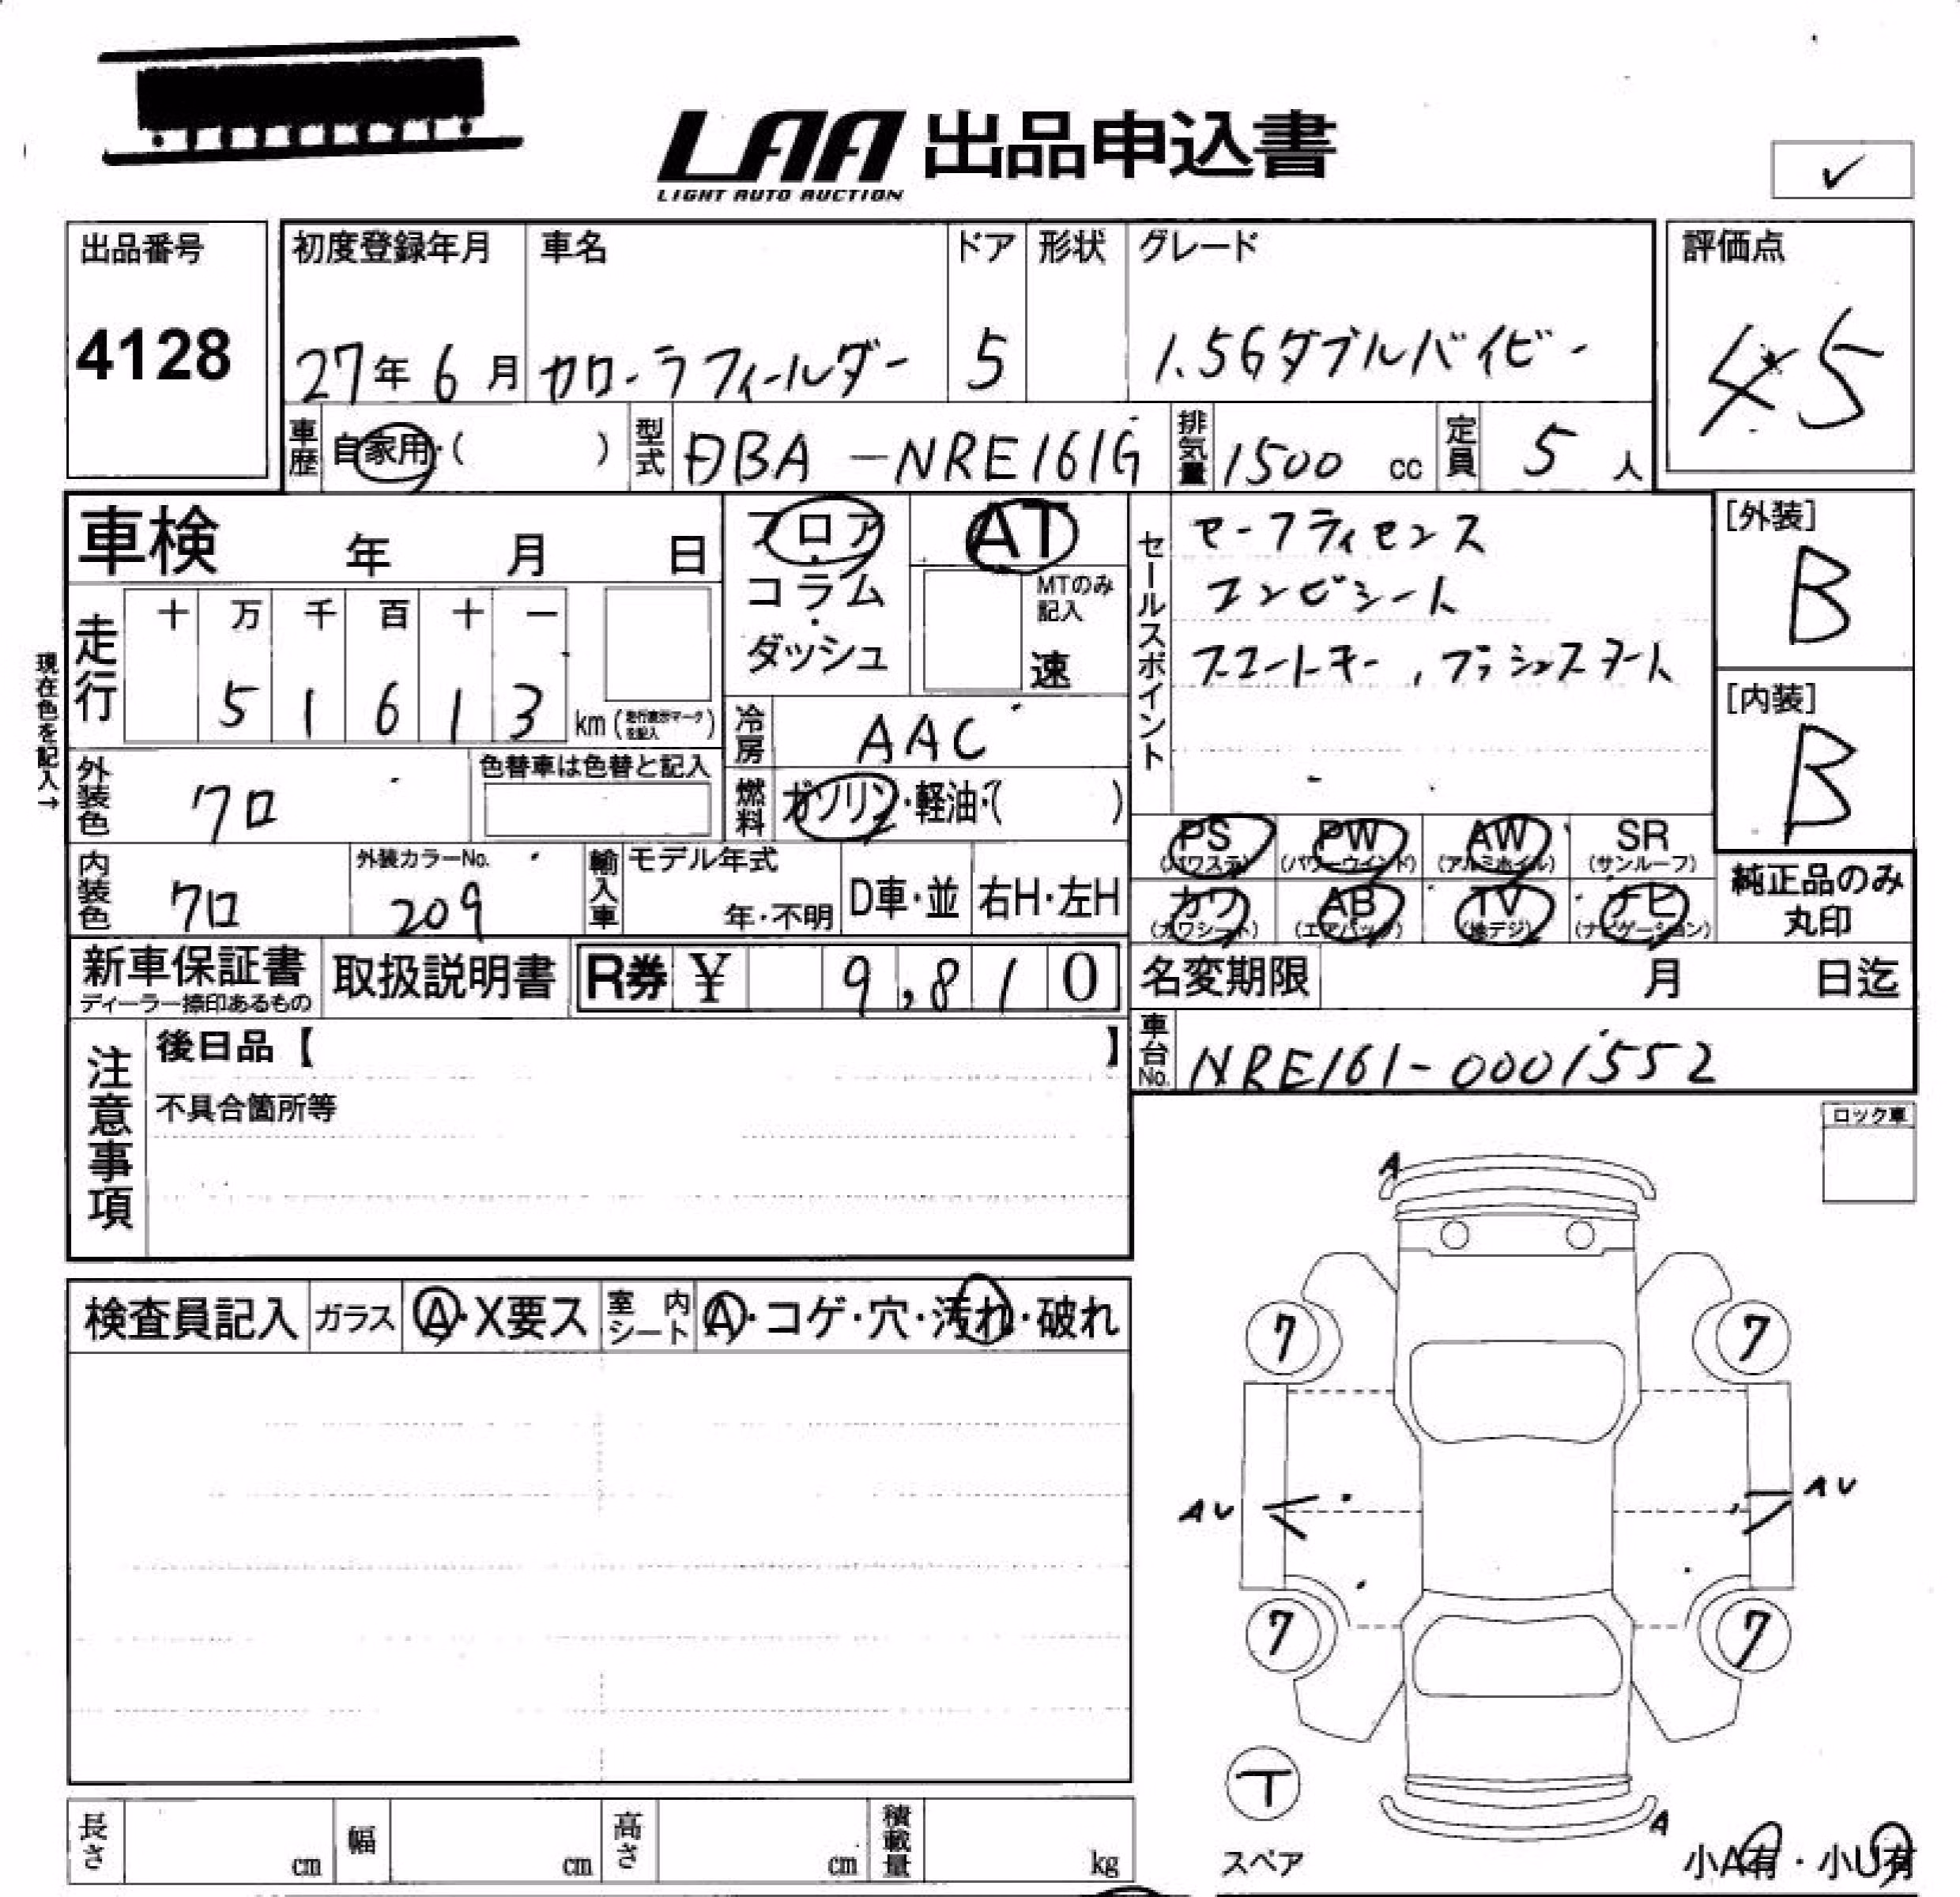 LAA 出品申込書
LIGHT AUTO AUCTION
✓
出品番号 初度登録年月 車名 ドア 形状 グレード 評価点
4128 27年6月 カローラフィールダー 5 1.5Gダブルバイビー 4.5
車歴 自家用・( ) 型式 DBA-NRE161G 排気量 1500 cc 定員 5人
車検 年 月 日 フロア・コラム・ダッシュ AT MTのみ記入 速
セールスポイント
セーフティセンス
コンビシート
スマートキー,プッシュスタート
[外装]
B
[内装]
B
現在色を記入→
走行 十 万 千 百 十 一
5 1 6 1 3 km(走行表示マークを記入)
冷房 AAC
外装色 クロ 色替車は色替と記入
燃料 ガソリン・軽油・( )
PS (パワステ) PW (パワーウインド) AW (アルミホイル) SR (サンルーフ)
カワ (カワシート) AB (エアバック) TV (地デジ) ナビ (ナビゲーション)
純正品のみ丸印
内装色 クロ 外装カラーNo. 209 輸入車 モデル年式 年・不明 D車・並 右H・左H
新車保証書 ディーラー捺印あるもの 取扱説明書 R券 ¥ 9,810
名変期限 月 日迄
車台No. NRE161-0001552
注意事項 後日品【 】
不具合箇所等
ロック車
検査員記入 ガラス A・X要ス 室内シート A・コゲ・穴・汚れ・破れ
A
7 7
AU AU
7 7
T
スペア
A
小A有・小U有
長さ cm 幅 cm 高さ cm 積載量 kg